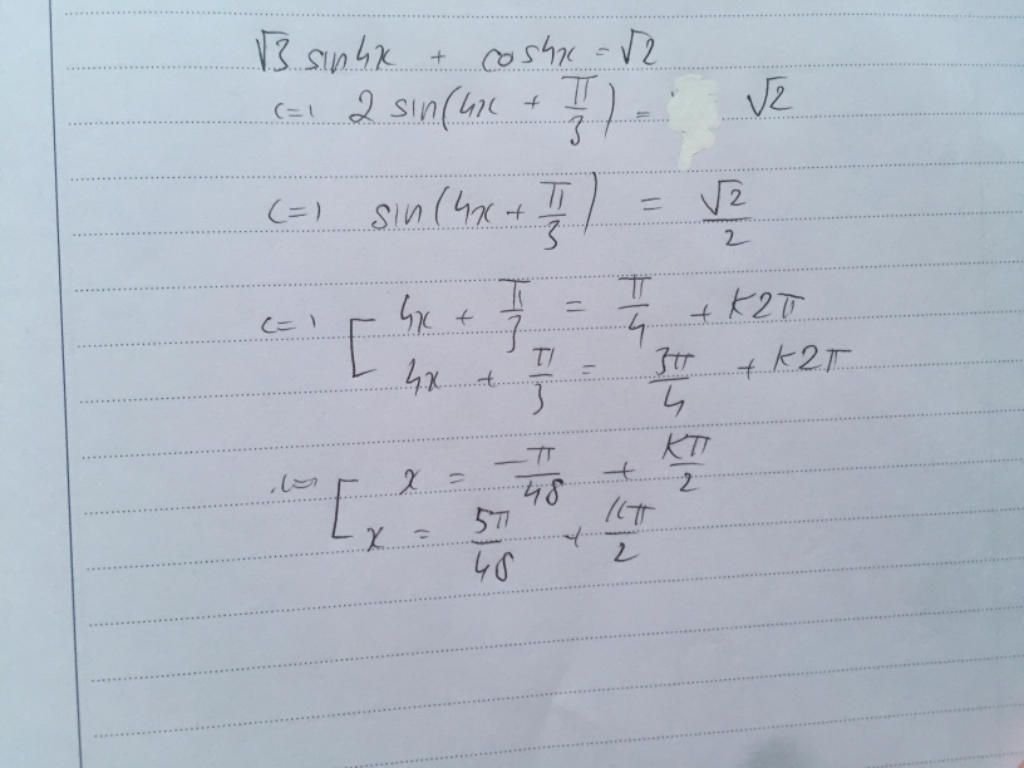 √3 sin4x + cos4x = √2
<=> 2 sin(4x + π/3) = √2
<=> sin(4x + π/3) = √2/2
<=> [ 4x + π/3 = π/4 + K2π
4x + π/3 = 3π/4 + K2π
<=> [ x = -π/48 + Kπ/2
x = 5π/48 + Kπ/2